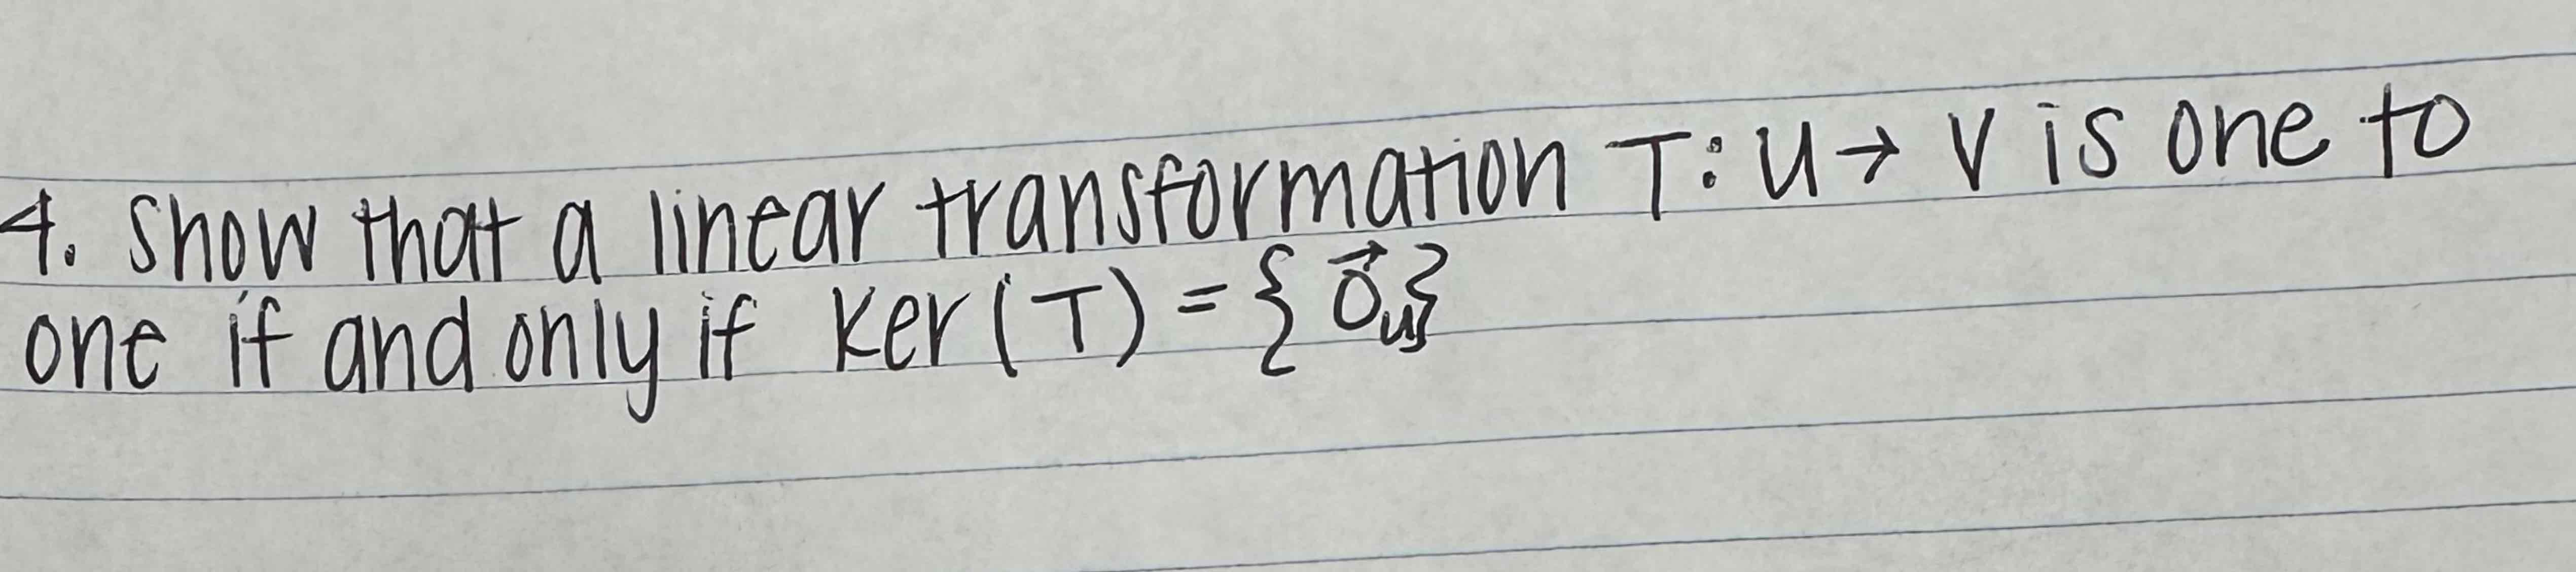 4. Show that a linear transformation T: U → V is one to
one if and only if Ker(T) = {0⃗ᵤ}